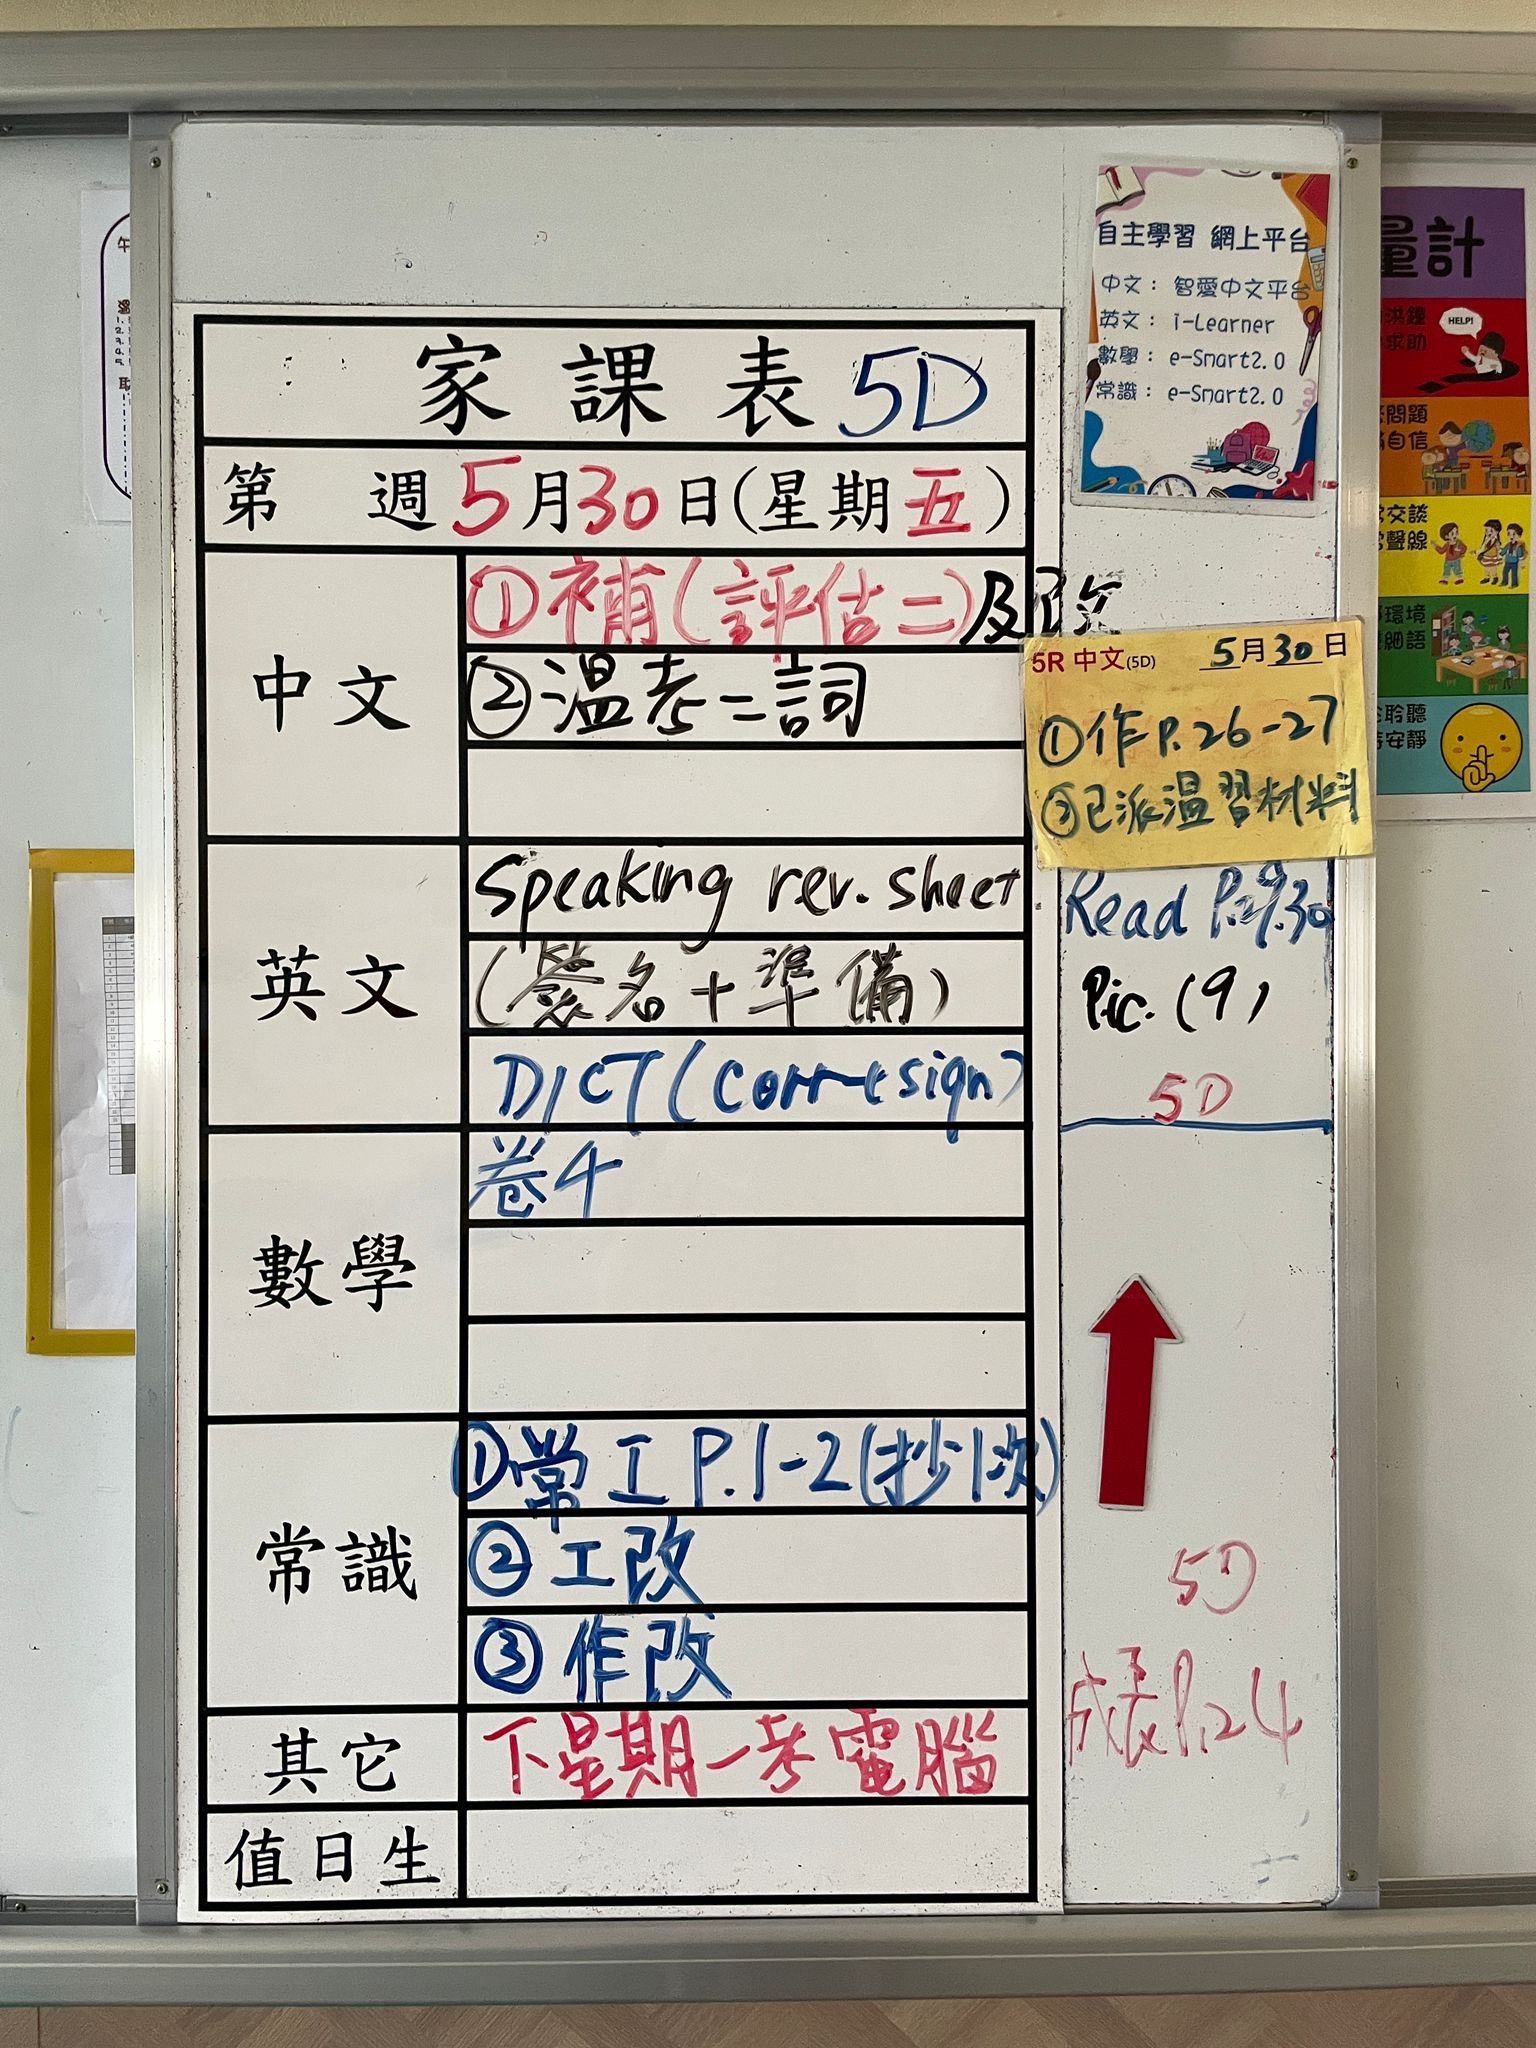 自主學習 網上平台
中文： 智愛中文平台
英文： i-Learner
數學： e-Smart2.0
常識： e-Smart2.0
量計
HELP!
求助
問題
自信
交談
聲線
環境
細語
聆聽
安靜
家課表 5D
第 週 5月30日(星期五)
中文
①補(評估二)及改
②温考二詞
5R 中文(5D) 5月30日
①作P.26-27
②已派温習材料
英文
Speaking rev. sheet
(簽名+準備)
DICT(corr+sign)
Read P.29.30
Pic. (9)
5D
數學
卷4
常識
①常工P.1-2(抄1次)
②工改
③作改
5D
成長P.24
其它
下星期一考電腦
值日生